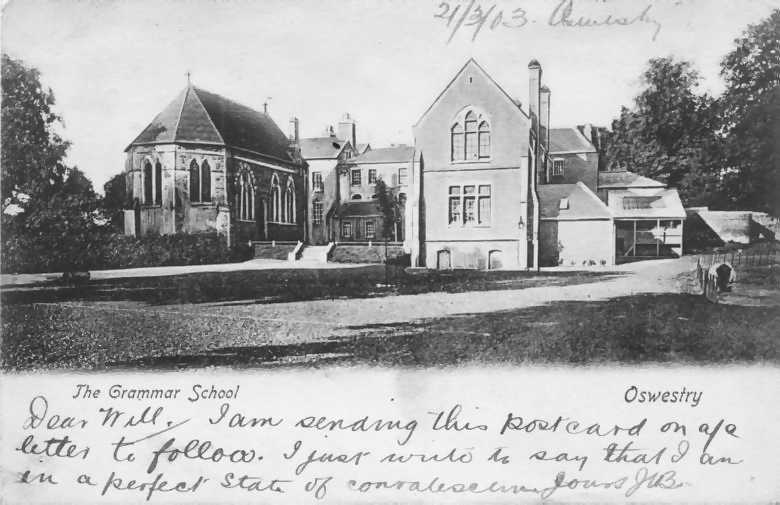 21/3/03. Oswestry
The Grammar School
Oswestry
Dear Will, I am sending this Postcard on a/c
letter to follow. I just write to say that I am
in a perfect State of Yours